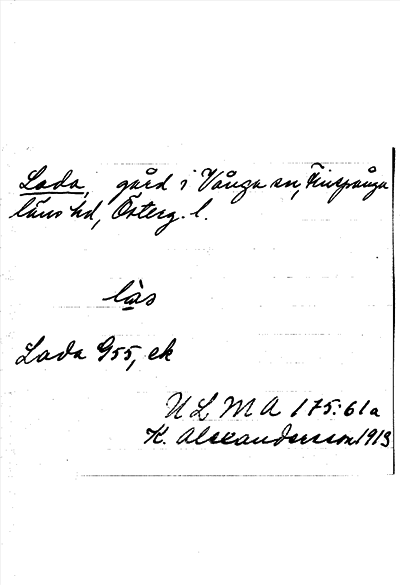 Lada, gård i Vånga sn, Finspånga
läns hd, Österg. l.
läs
Lada G55, ek
ULMA 175:61a
K. Alexandersson 1913